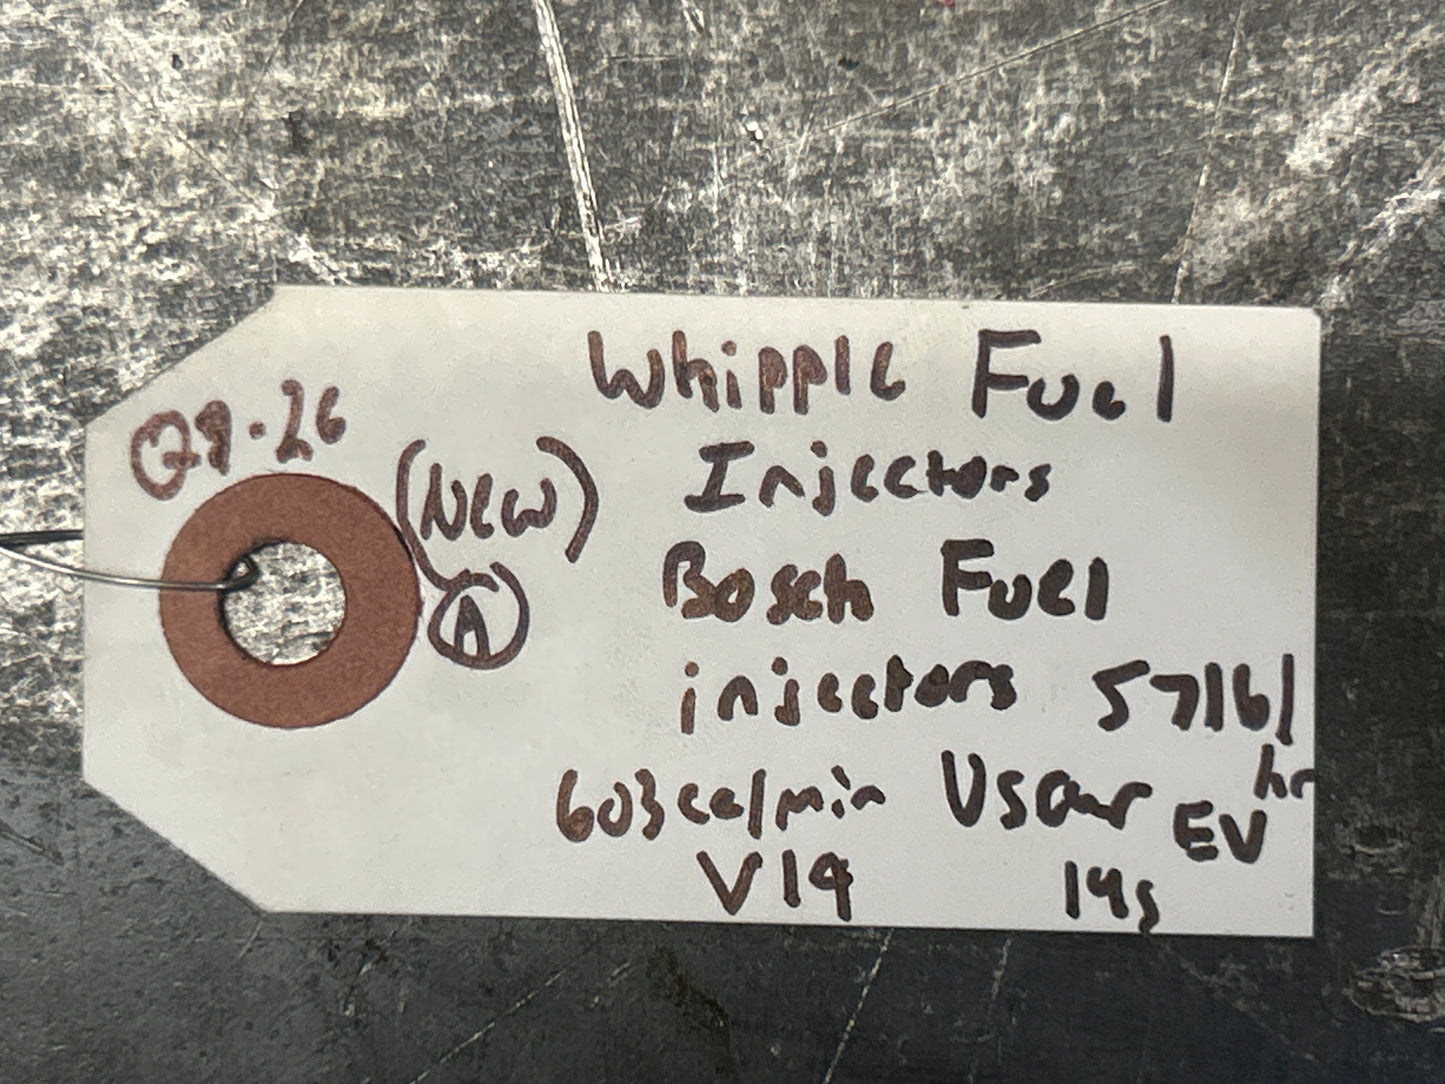 Q8-26
(New)
A
Whipple Fuel
Injectors
Bosch Fuel
injectors 57lb/
hr
603cc/min Uscar EV
V14 14s